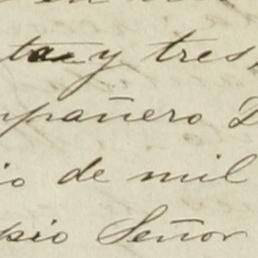 ta y tres,
mpañero D
io de mil
psio Señor